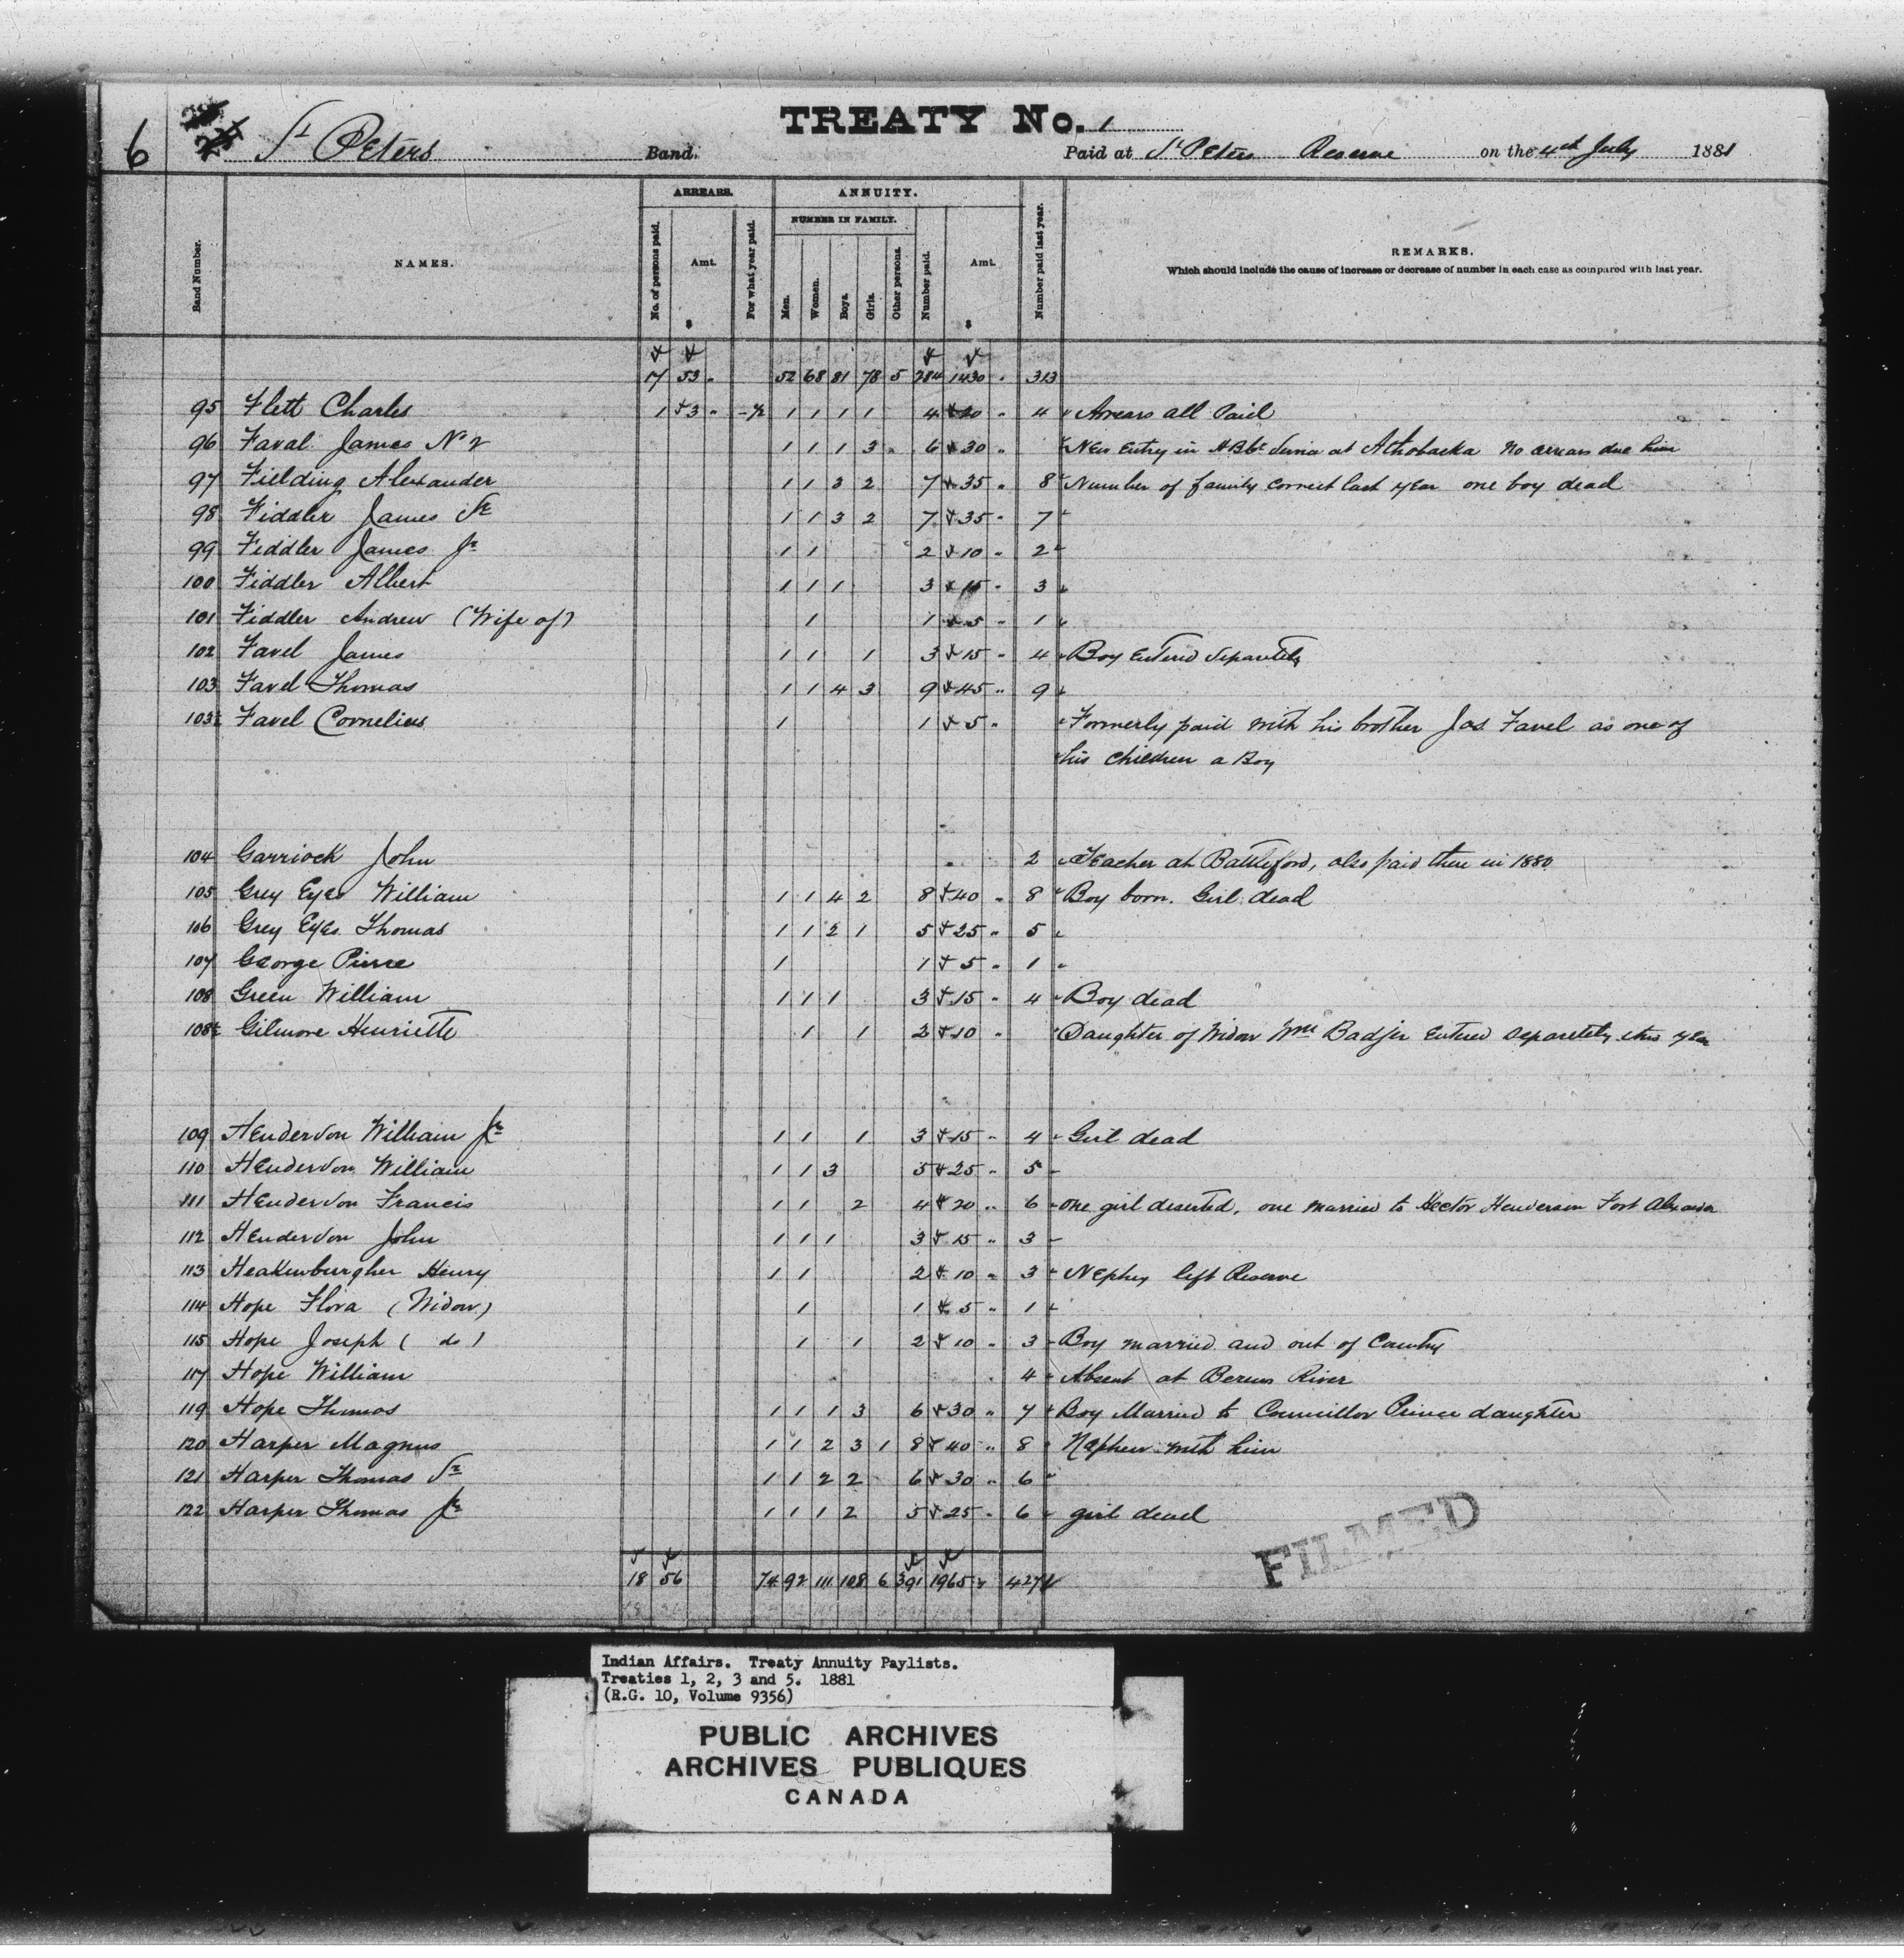 6
St Peters Band.
TREATY No. 1
Paid at St Peters Reserve on the 4th July 1881
ARREARS. ANNUITY.
NUMBER IN FAMILY.
Band Number. NAMES. No. of persons paid. Amt. $ For what year paid. Men. Women. Boys. Girls. Other persons. Number paid. Amt. $ Number paid last year. REMARKS.
Which should include the cause of increase or decrease of number in each case as compared with last year.
17 53 " 52 68 81 78 5 284 1430 " 313
95 Flett Charles 1 3 " 1 1 1 1 4 20 " 4 Arrears all Paid
96 Faval James No 2 1 1 1 3 6 30 " New Entry in H B Co Service at Athabaska No arrears due him
97 Fielding Alexander 1 1 3 2 7 35 " 8 Number of family correct last year one boy dead
98 Fiddler James Sr 1 1 3 2 7 35 " 7
99 Fiddler James Jr 1 1 2 10 " 2
100 Fiddler Albert 1 1 1 3 15 " 3
101 Fiddler Andrew (Wife of) 1 1 5 " 1
102 Favel James 1 1 1 3 15 " 4 Boy Entered Separately
103 Favel Thomas 1 1 4 3 9 45 " 9
103½ Favel Cornelius 1 1 5 " Formerly paid with his brother Jas. Favel as one of
his children a Boy
104 Garriock John 2 Teacher at Battleford, also paid there in 1880
105 Grey Eyes William 1 1 4 2 8 40 " 8 Boy born. Girl dead
106 Grey Eyes Thomas 1 1 2 1 5 25 " 5
107 George Pierre 1 1 5 " 1
108 Green William 1 1 1 3 15 " 4 Boy dead
108½ Gilmore Henriette 1 1 2 10 " Daughter of Widow Wm Badjer Entered separately this year
109 Henderson William Jr 1 1 1 3 15 " 4 Girl dead
110 Henderson William 1 1 3 5 25 " 5
111 Henderson Francis 1 1 2 4 20 " 6 one girl deserted, one married to Hector Henderson Fort Alexander
112 Henderson John 1 1 1 3 15 " 3
113 Heakenburgher Henry 1 1 2 10 " 3 Nephew left Reserve
114 Hope Flora (Widow) 1 1 5 " 1
115 Hope Joseph ( do ) 1 1 2 10 " 3 Boy married and out of Country
117 Hope William 4 Absent at Berens River
119 Hope Thomas 1 1 1 3 6 30 " 7 Boy Married to Councillor Prince daughter
120 Harper Magnus 1 1 2 3 1 8 40 " 8 Nephew with him
121 Harper Thomas Sr 1 1 2 2 6 30 " 6
122 Harper Thomas Jr 1 1 1 2 5 25 " 6 girl dead
18 56 74 92 111 108 6 391 1965 427
FILMED
Indian Affairs. Treaty Annuity Paylists.
Treaties 1, 2, 3 and 5. 1881
(R.G. 10, Volume 9356)
PUBLIC ARCHIVES
ARCHIVES PUBLIQUES
CANADA